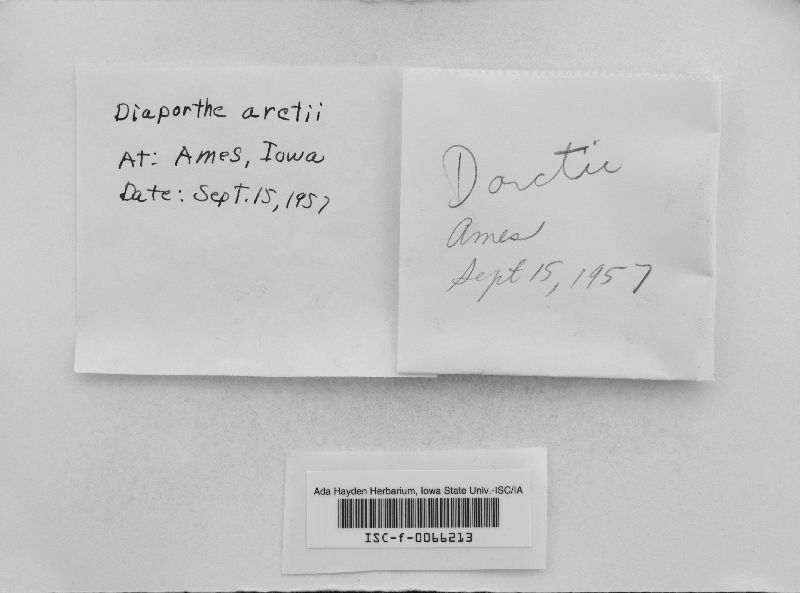 Diaporthe arctii
At: Ames, Iowa
Date: Sept. 15, 1957
D arctii
Ames
Sept 15, 1957
Ada Hayden Herbarium, Iowa State Univ.-ISC/IA
ISC-f-0066213